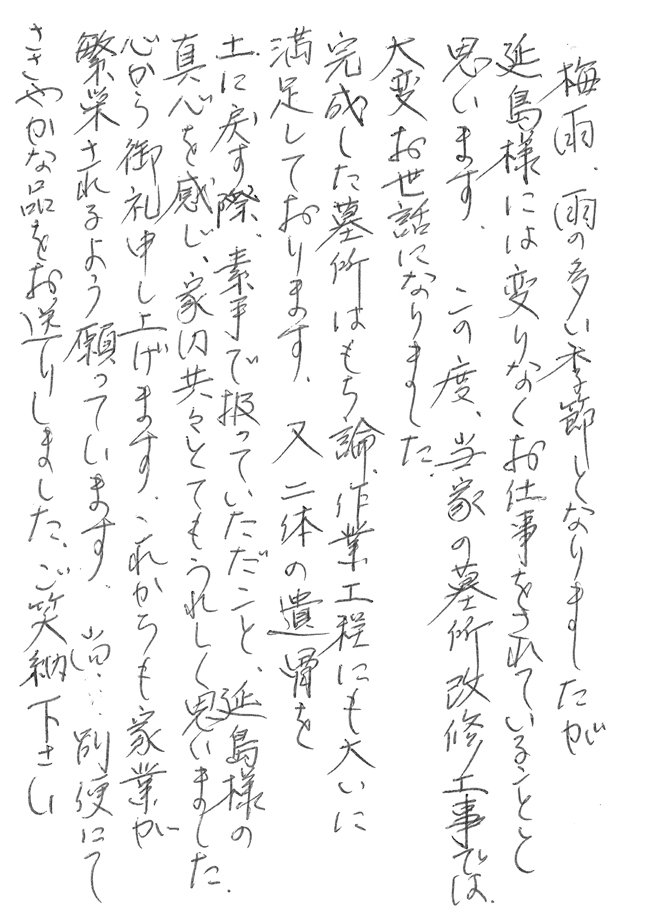 梅雨、雨の多い季節となりましたが
延島様には変りなくお仕事をされていることと
思います。この度、当家の墓所改修工事では、
大変お世話になりました。
完成した墓所はもち論、作業工程にも大いに
満足しております。又二体の遺骨を
土に戻す際、素手で扱っていただこと、延島様の
真心を感じ、家内共々とてもうれしく思いました。
心から御礼申し上げます。これからも家業が
繁栄されるよう願っています。尚…別便にて
ささやかな品をお送りしました、ご笑納下さい